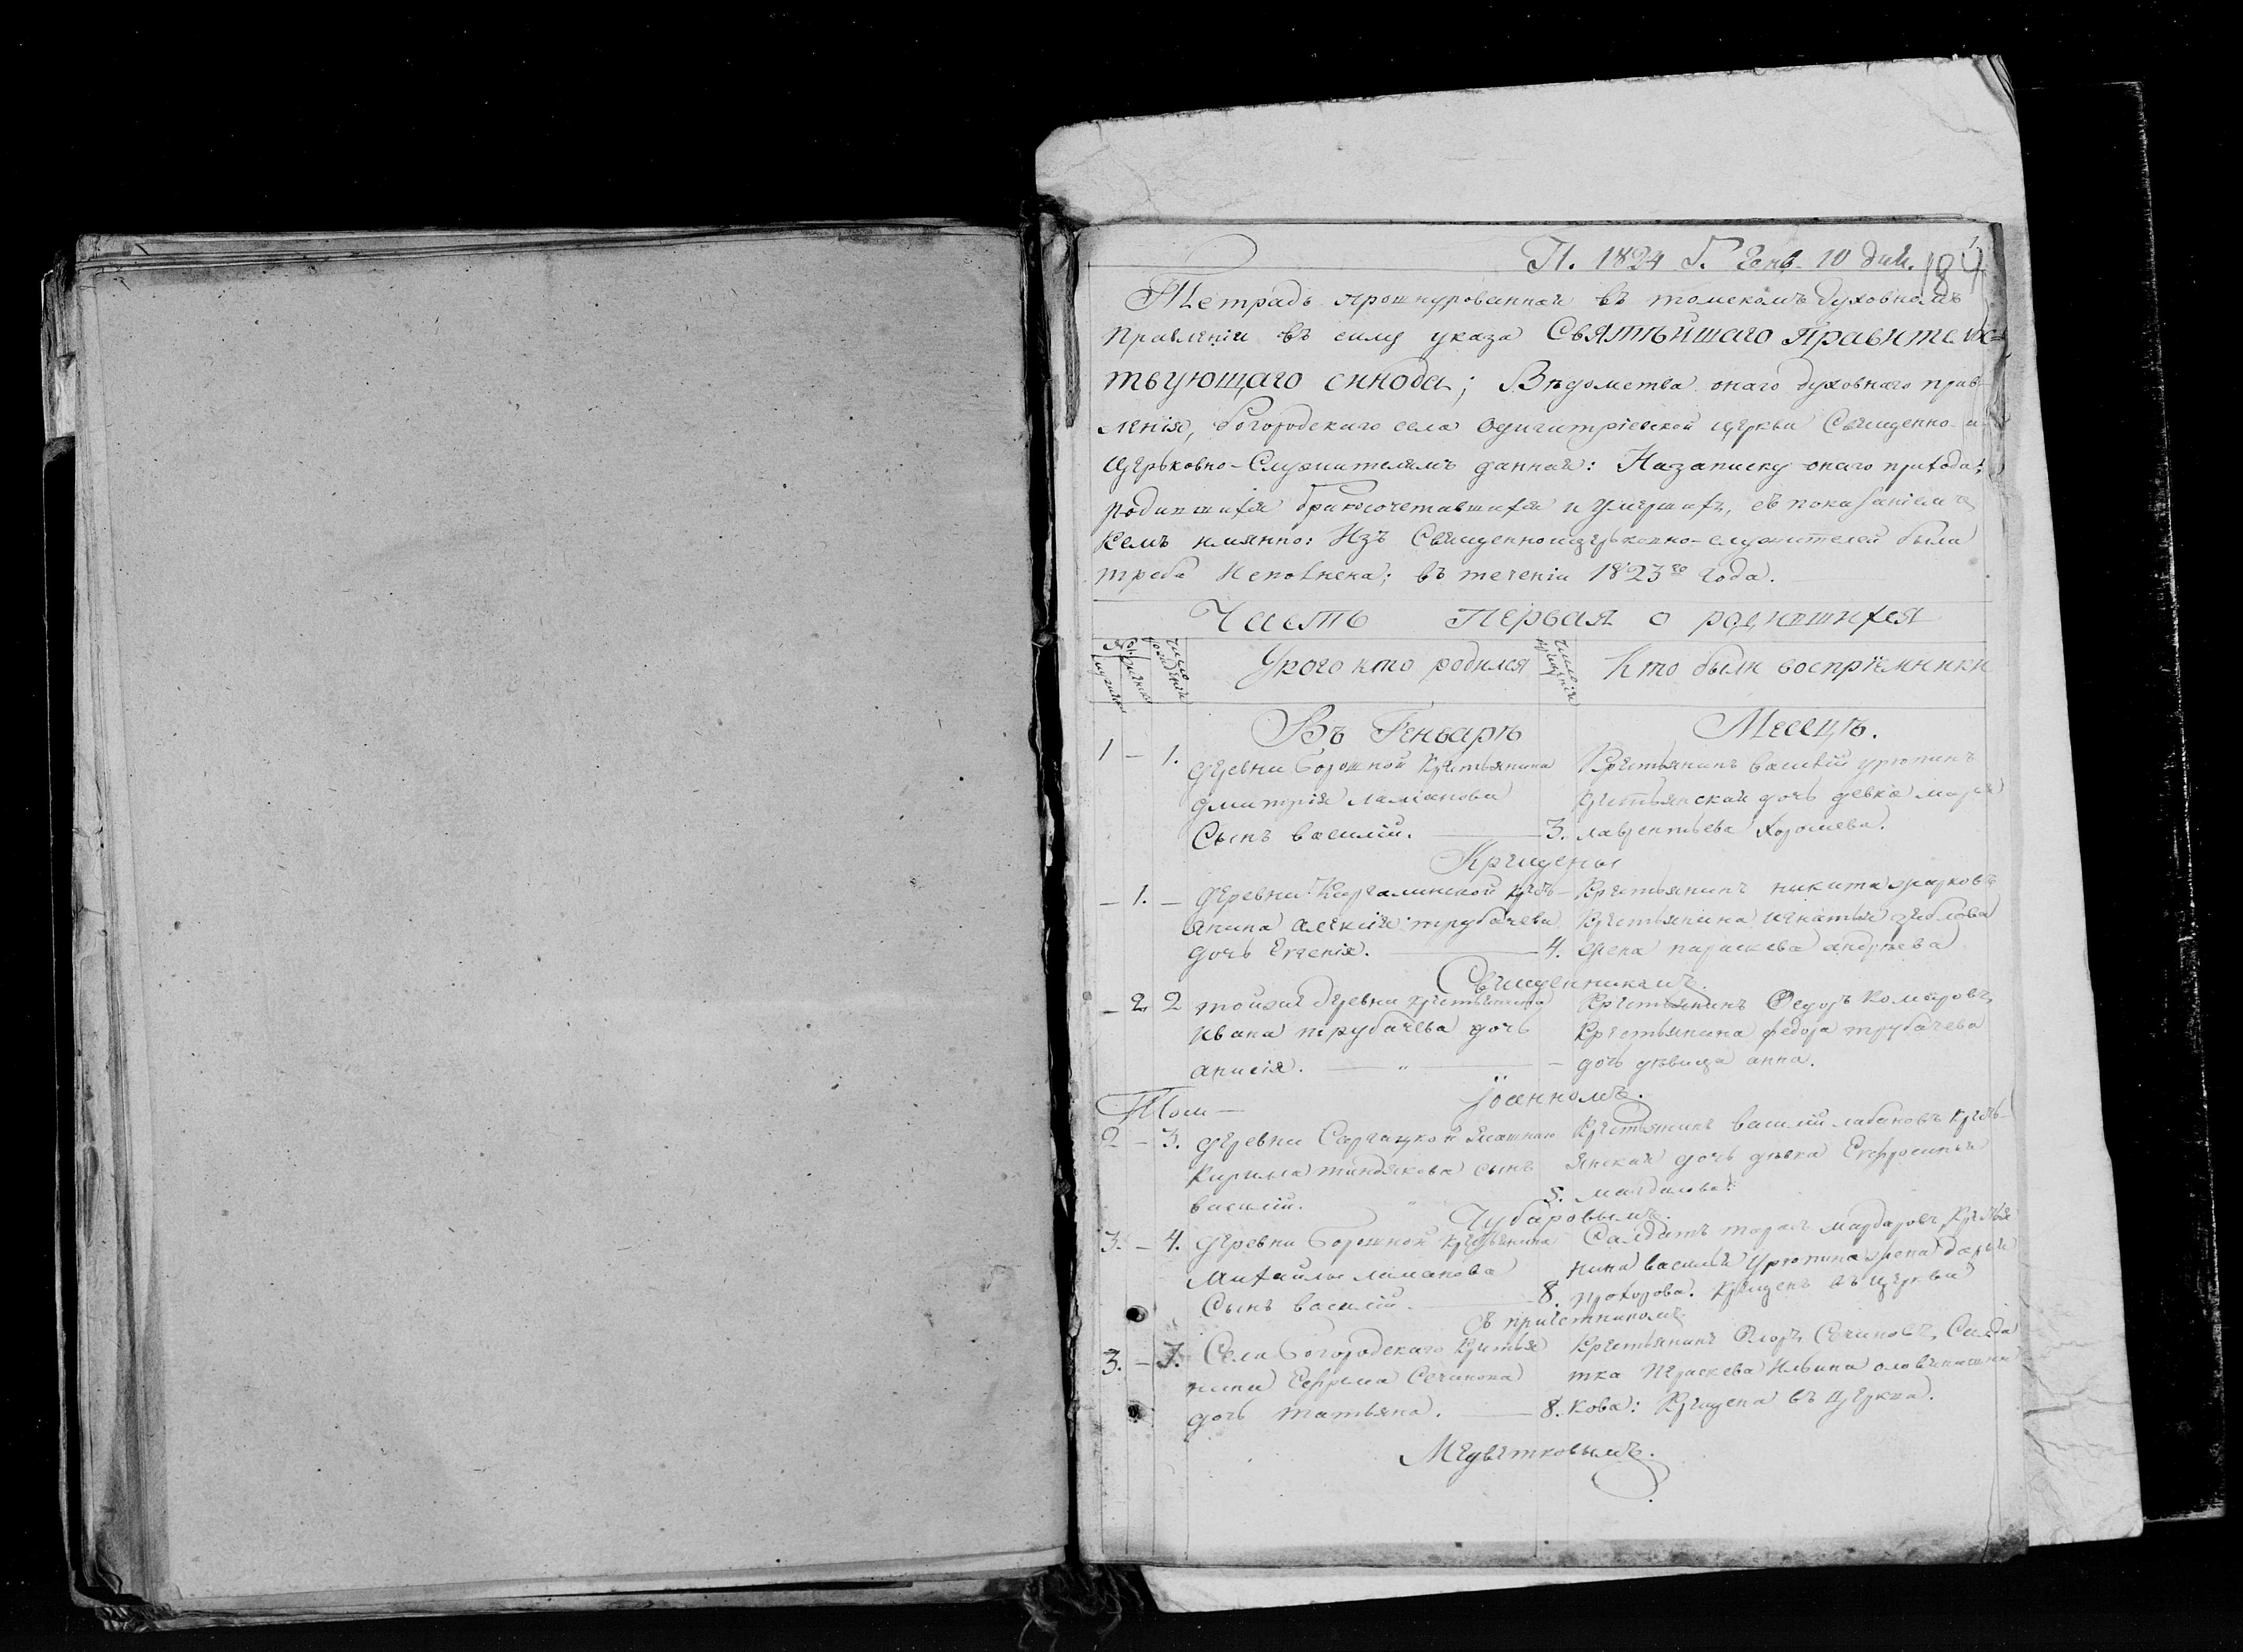 П. 1824 г. Генв. 10 дня.
1.
184
Тетрадь прошнурованная въ томскомъ духовномъ
правленіи въ силу указа Святѣйшаго Правительс=
твующаго синода; Вѣдомства онаго духовнаго прав-
ленія, богородскаго села одигитріевской церкви Священно- и
церковно-Служителямъ данная: На записку онаго прихода;
родившихся бракосочетавшихся и умершихъ, съ показаніемъ
кемъ имянно: Изъ Священноицерьковно-служителей была
треба исполнена; въ теченіи 1823го года.
Часть первая о родившихся
число рожденія
У кого кто родился
число крещенія
Кто были воспріемники
Въ Геньварѣ Месецѣ.
1 – 1. деревни Борошной крестьянина
дмитрія ламанова
Сынъ василій. — 3.
Крестьянинъ василій урюпинъ
крестьянская дочь девка марья
лаврентьева
Крещены
– 1. – деревни Каргалинской кресть-
янина алексія трубачева
дочь Евгенія. — 4.
Крестьянинъ никита жарковъ
крестьянина игнатья
жена параскева андреева
Священникомъ.
– 2. 2 тойже деревни крестьянина
Ивана трубачева дочь
анисія. — „ —
Крестьянинъ Федоръ Комаровъ,
крестьянина федора трубачева
дочь девица анна.
Іоанномъ.
Том—
2 – 3. деревни Саргацкой ясашнаго
Кирила тиндякова сынъ
василій. 5.
Крестьянинъ василій лабановъ кресть-
янская дочь девка Евфросинья
Чубаровымъ.
3. – 4. деревни Борошной крестьянина
Михайлы ламанова
Сынъ василій. — 8.
Салдатъ тарасъ крестья
нина василья урюпина жена дарья
прохорова. крещенъ въ церкви
Съ причетникомъ
3. – 7. Села Богородскаго крестья
нина Ефрема Сечинова
дочь татьяна. — 8.
Крестьянинъ Флоръ Сечиновъ, Салда
тка Параскева Ильина
кова: Крещена въ церкви.
Медветковымъ.